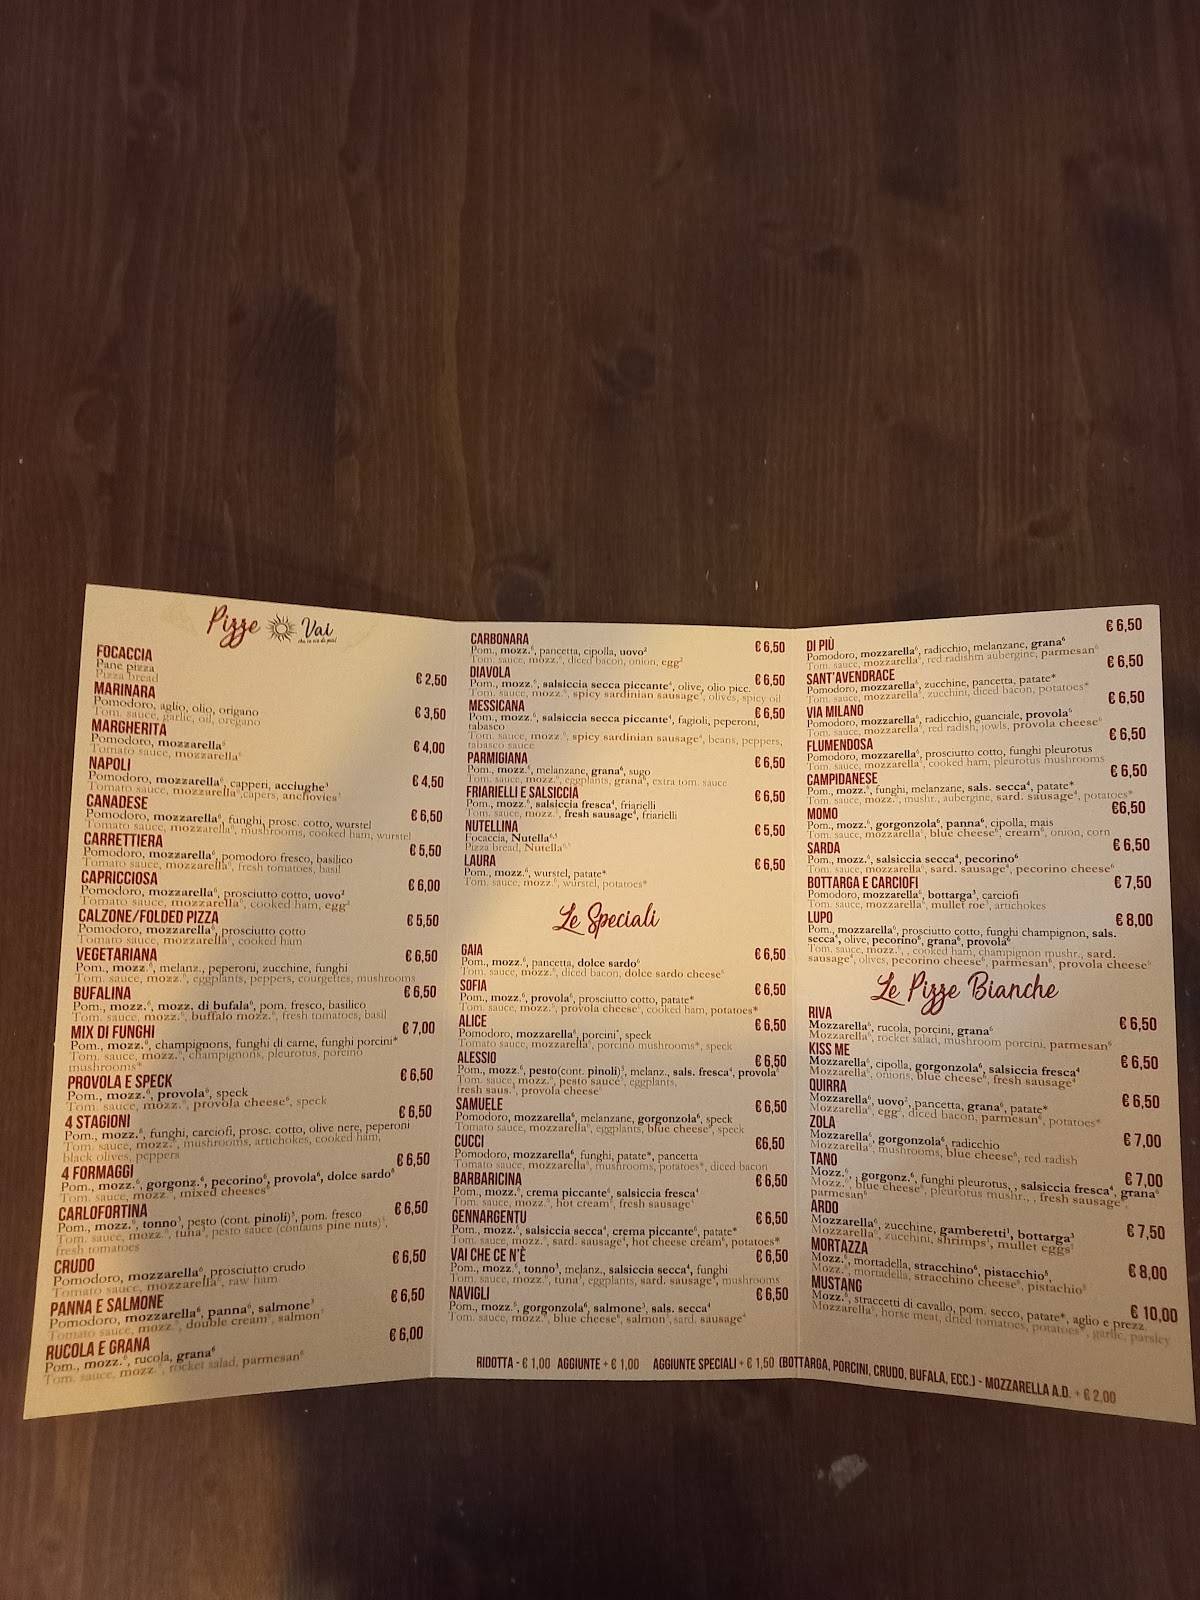 Pizze Vai
che ce n'è di più!
FOCACCIA
Pane pizza € 2,50
Pizza bread
MARINARA
Pomodoro, aglio, olio, origano € 3,50
Tom. sauce, garlic, oil, oregano
MARGHERITA
Pomodoro, mozzarella⁶ € 4,00
Tomato sauce, mozzarella⁶
NAPOLI
Pomodoro, mozzarella⁶, capperi, acciughe³ € 4,50
Tomato sauce, mozzarella⁶,capers, anchovies³
CANADESE
Pomodoro, mozzarella⁶, funghi, prosc. cotto, wurstel € 6,50
Tomato sauce, mozzarella⁶, mushrooms, cooked ham, wurstel
CARRETTIERA
Pomodoro, mozzarella⁶, pomodoro fresco, basilico € 5,50
Tomato sauce, mozzarella⁶, fresh tomatoes, basil
CAPRICCIOSA
Pomodoro, mozzarella⁶, prosciutto cotto, uovo² € 6,00
Tomato sauce, mozzarella⁶, cooked ham, egg²
CALZONE/FOLDED PIZZA
Pomodoro, mozzarella⁶, prosciutto cotto € 5,50
Tomato sauce, mozzarella⁶, cooked ham
VEGETARIANA
Pom., mozz.⁶, melanz., peperoni, zucchine, funghi € 6,50
Tom. sauce, mozz.⁶, eggplants, peppers, courgettes, mushrooms
BUFALINA € 6,50
Pom., mozz.⁶, mozz. di bufala⁶, pom. fresco, basilico
Tom. sauce, mozz.⁶, buffalo mozz.⁶, fresh tomatoes, basil
MIX DI FUNGHI € 7,00
Pom., mozz.⁶, champignons, funghi di carne, funghi porcini*
Tom. sauce, mozz.⁶, champignons, pleurotus, porcino
mushrooms*
PROVOLA E SPECK € 6,50
Pom., mozz.⁶, provola⁶, speck
Tom. sauce, mozz.⁶, provola cheese⁶, speck
4 STAGIONI € 6,50
Pom., mozz.⁶, funghi, carciofi, prosc. cotto, olive nere, peperoni
Tom. sauce, mozz.⁶, mushrooms, artichokes, cooked ham,
black olives, peppers
4 FORMAGGI € 6,50
Pom., mozz.⁶, gorgonz.⁶, pecorino⁶, provola⁶, dolce sardo⁶
Tom. sauce, mozz.⁶, mixed cheeses⁶
CARLOFORTINA € 6,50
Pom., mozz.⁶, tonno³, pesto (cont. pinoli)⁵, pom. fresco
Tom. sauce, mozz.⁶, tuna³, pesto sauce (contains pine nuts)⁵,
fresh tomatoes
CRUDO € 6,50
Pomodoro, mozzarella⁶, prosciutto crudo
Tomato sauce, mozzarella⁶, raw ham
PANNA E SALMONE € 6,50
Pomodoro, mozzarella⁶, panna⁶, salmone³
Tomato sauce, mozz.⁶, double cream⁶, salmon³
RUCOLA E GRANA € 6,00
Pom., mozz.⁶, rucola, grana⁶
Tom. sauce, mozz.⁶, rocket salad, parmesan⁶
CARBONARA
Pom., mozz.⁶, pancetta, cipolla, uovo² € 6,50
Tom. sauce, mozz.⁶, diced bacon, onion, egg²
DIAVOLA
Pom., mozz.⁶, salsiccia secca piccante⁴, olive, olio picc. € 6,50
Tom. sauce, mozz.⁶, spicy sardinian sausage⁴, olives, spicy oil
MESSICANA € 6,50
Pom., mozz.⁶, salsiccia secca piccante⁴, fagioli, peperoni,
tabasco
Tom. sauce, mozz.⁶, spicy sardinian sausage⁴, beans, peppers,
tabasco sauce
PARMIGIANA € 6,50
Pom., mozz.⁶, melanzane, grana⁶, sugo
Tom. sauce, mozz.⁶, eggplants, grana⁶, extra tom. sauce
FRIARIELLI E SALSICCIA € 6,50
Pom., mozz.⁶, salsiccia fresca⁴, friarielli
Tom. sauce, mozz.⁶, fresh sausage⁴, friarielli
NUTELLINA € 5,50
Focaccia, Nutella⁶·⁵
Pizza bread, Nutella⁶·⁵
LAURA € 6,50
Pom., mozz.⁶, wurstel, patate*
Tom. sauce, mozz.⁶, wurstel, potatoes*
Le Speciali
GAIA € 6,50
Pom., mozz.⁶, pancetta, dolce sardo⁶
Tom. sauce, mozz.⁶, diced bacon, dolce sardo cheese⁶
SOFIA € 6,50
Pom., mozz.⁶, provola⁶, prosciutto cotto, patate*
Tom. sauce, mozz.⁶, provola cheese⁶, cooked ham, potatoes*
ALICE € 6,50
Pomodoro, mozzarella⁶, porcini*, speck
Tomato sauce, mozzarella⁶, porcino mushrooms*, speck
ALESSIO € 6,50
Pom., mozz.⁶, pesto(cont. pinoli)⁵, melanz., sals. fresca⁴, provola⁶
Tom. sauce, mozz.⁶, pesto sauce⁵, eggplants,
fresh saus.⁴, provola cheese⁶
SAMUELE € 6,50
Pomodoro, mozzarella⁶, melanzane, gorgonzola⁶, speck
Tomato sauce, mozzarella⁶, eggplants, blue cheese⁶, speck
CUCCI €6,50
Pomodoro, mozzarella⁶, funghi, patate*, pancetta
Tomato sauce, mozzarella⁶, mushrooms, potatoes*, diced bacon
BARBARICINA € 6,50
Pom., mozz.⁶, crema piccante⁶, salsiccia fresca⁴
Tom. sauce, mozz.⁶, hot cream⁶, fresh sausage⁴
GENNARGENTU € 6,50
Pom., mozz.⁶, salsiccia secca⁴, crema piccante⁶, patate*
Tom. sauce, mozz.⁶, sard. sausage⁴, hot cheese cream⁶, potatoes*
VAI CHE CE N'È € 6,50
Pom., mozz.⁶, tonno³, melanz., salsiccia secca⁴, funghi
Tom. sauce, mozz.⁶, tuna³, eggplants, sard. sausage⁴, mushrooms
NAVIGLI € 6,50
Pom., mozz.⁶, gorgonzola⁶, salmone³, sals. secca⁴
Tom. sauce, mozz.⁶, blue cheese⁶, salmon³, sard. sausage⁴
DI PIÙ € 6,50
Pomodoro, mozzarella⁶, radicchio, melanzane, grana⁶
Tom. sauce, mozzarella⁶, red radishm aubergine, parmesan⁶
SANT'AVENDRACE € 6,50
Pomodoro, mozzarella⁶, zucchine, pancetta, patate*
Tom. sauce, mozzarella⁶, zucchini, diced bacon, potatoes*
VIA MILANO € 6,50
Pomodoro, mozzarella⁶, radicchio, guanciale, provola⁶
Tom. sauce, mozzarella⁶, red radish, jowls, provola cheese⁶
FLUMENDOSA € 6,50
Pomodoro, mozzarella⁶, prosciutto cotto, funghi pleurotus
Tom. sauce, mozzarella⁶, cooked ham, pleurotus mushrooms
CAMPIDANESE € 6,50
Pom., mozz.⁶, funghi, melanzane, sals. secca⁴, patate*
Tom. sauce, mozz.⁶, mushr., aubergine, sard. sausage⁴, potatoes*
MOMO €6,50
Pom., mozz.⁶, gorgonzola⁶, panna⁶, cipolla, mais
Tom. sauce, mozzarella⁶, blue cheese⁶, cream⁶, onion, corn
SARDA € 6,50
Pom., mozz.⁶, salsiccia secca⁴, pecorino⁶
Tom. sauce, mozzarella⁶, sard. sausage⁴, pecorino cheese⁶
BOTTARGA E CARCIOFI € 7,50
Pomodoro, mozzarella⁶, bottarga³, carciofi
Tom. sauce, mozzarella⁶, mullet roe³, artichokes
LUPO € 8,00
Pom., mozzarella⁶, prosciutto cotto, funghi champignon, sals.
secca⁴, olive, pecorino⁶, grana⁶, provola⁶
Tom. sauce, mozz.⁶, , cooked ham, champignon mushr., sard.
sausage⁴, olives, pecorino cheese⁶, parmesan⁶, provola cheese⁶
Le Pizze Bianche
RIVA
Mozzarella⁶, rucola, porcini, grana⁶ € 6,50
Mozzarella⁶, rocket salad, mushroom porcini, parmesan⁶
KISS ME
Mozzarella⁶, cipolla, gorgonzola⁶, salsiccia fresca⁴ € 6,50
Mozzarella⁶, onions, blue cheese⁶, fresh sausage⁴
QUIRRA
Mozzarella⁶, uovo², pancetta, grana⁶, patate* € 6,50
Mozzarella⁶, egg², diced bacon, parmesan⁶, potatoes*
ZOLA
Mozzarella⁶, gorgonzola⁶, radicchio € 7,00
Mozzarella⁶, mushrooms, blue cheese⁶, red radish
TANO
Mozz.⁶, , gorgonz.⁶, funghi pleurotus, , salsiccia fresca⁴, grana⁶ € 7,00
Mozz.⁶, blue cheese⁶, pleurotus mushr., , fresh sausage⁴,
parmesan⁶
ARDO
Mozzarella⁶, zucchine, gamberetti¹, bottarga³ € 7,50
Mozzarella⁶, zucchini, shrimps¹, mullet eggs³
MORTAZZA
Mozz.⁶, mortadella, stracchino⁶, pistacchio⁵, € 8,00
Mozz.⁶, mortadella, stracchino cheese⁶, pistachio⁵
MUSTANG
Mozz.⁶, straccetti di cavallo, pom. secco, patate*, aglio e prezz. € 10,00
Mozzarella⁶, horse meat, dried tomatoes, potatoes*, garlic, parsley
RIDOTTA - € 1,00 AGGIUNTE + € 1,00 AGGIUNTE SPECIALI + € 1,50 (BOTTARGA, PORCINI, CRUDO, BUFALA, ECC.) - MOZZARELLA A.D. + € 2,00